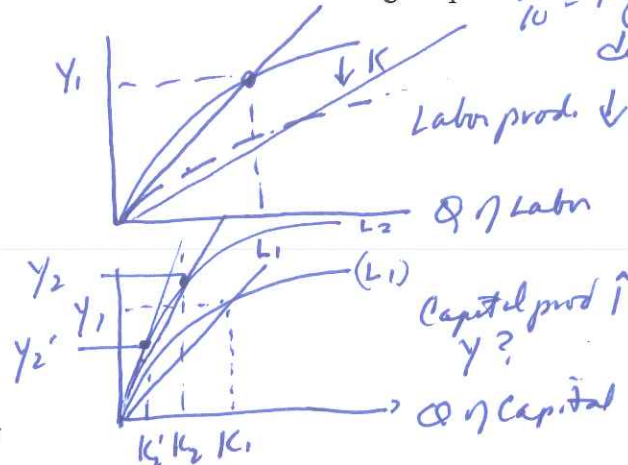 Y₁
↓ K
Labor prod. ↓
Q of Labor
L₂
L₁
(L₁)
Y₂
Y₁
Y₂'
Capital prod ↑
Y ?
Q of Capital
K₂' K₂ K₁